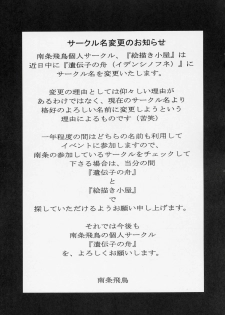 サークル名変更のお知らせ
南条飛鳥個人サークル、『絵描き小屋』は
近日中に『遺伝子の舟（イデンシノフネ）』に
サークル名を変更いたします。
変更の理由としては仰々しい理由が
あるわけではなく、現在のサークル名より
格好のよろしい名前に変更しようという
理由によるものです（苦笑）
一年程度の間はどちらの名前も利用して
イベントに参加しますので、
南条の参加しているサークルをチェックして
下さる場合は、当分の間
『遺伝子の舟』
と
『絵描き小屋』
で
探していただけるようお願い申し上げます。
それでは今後も
南条飛鳥の個人サークル
『遺伝子の舟』
を、よろしくお願いします。
南条飛鳥